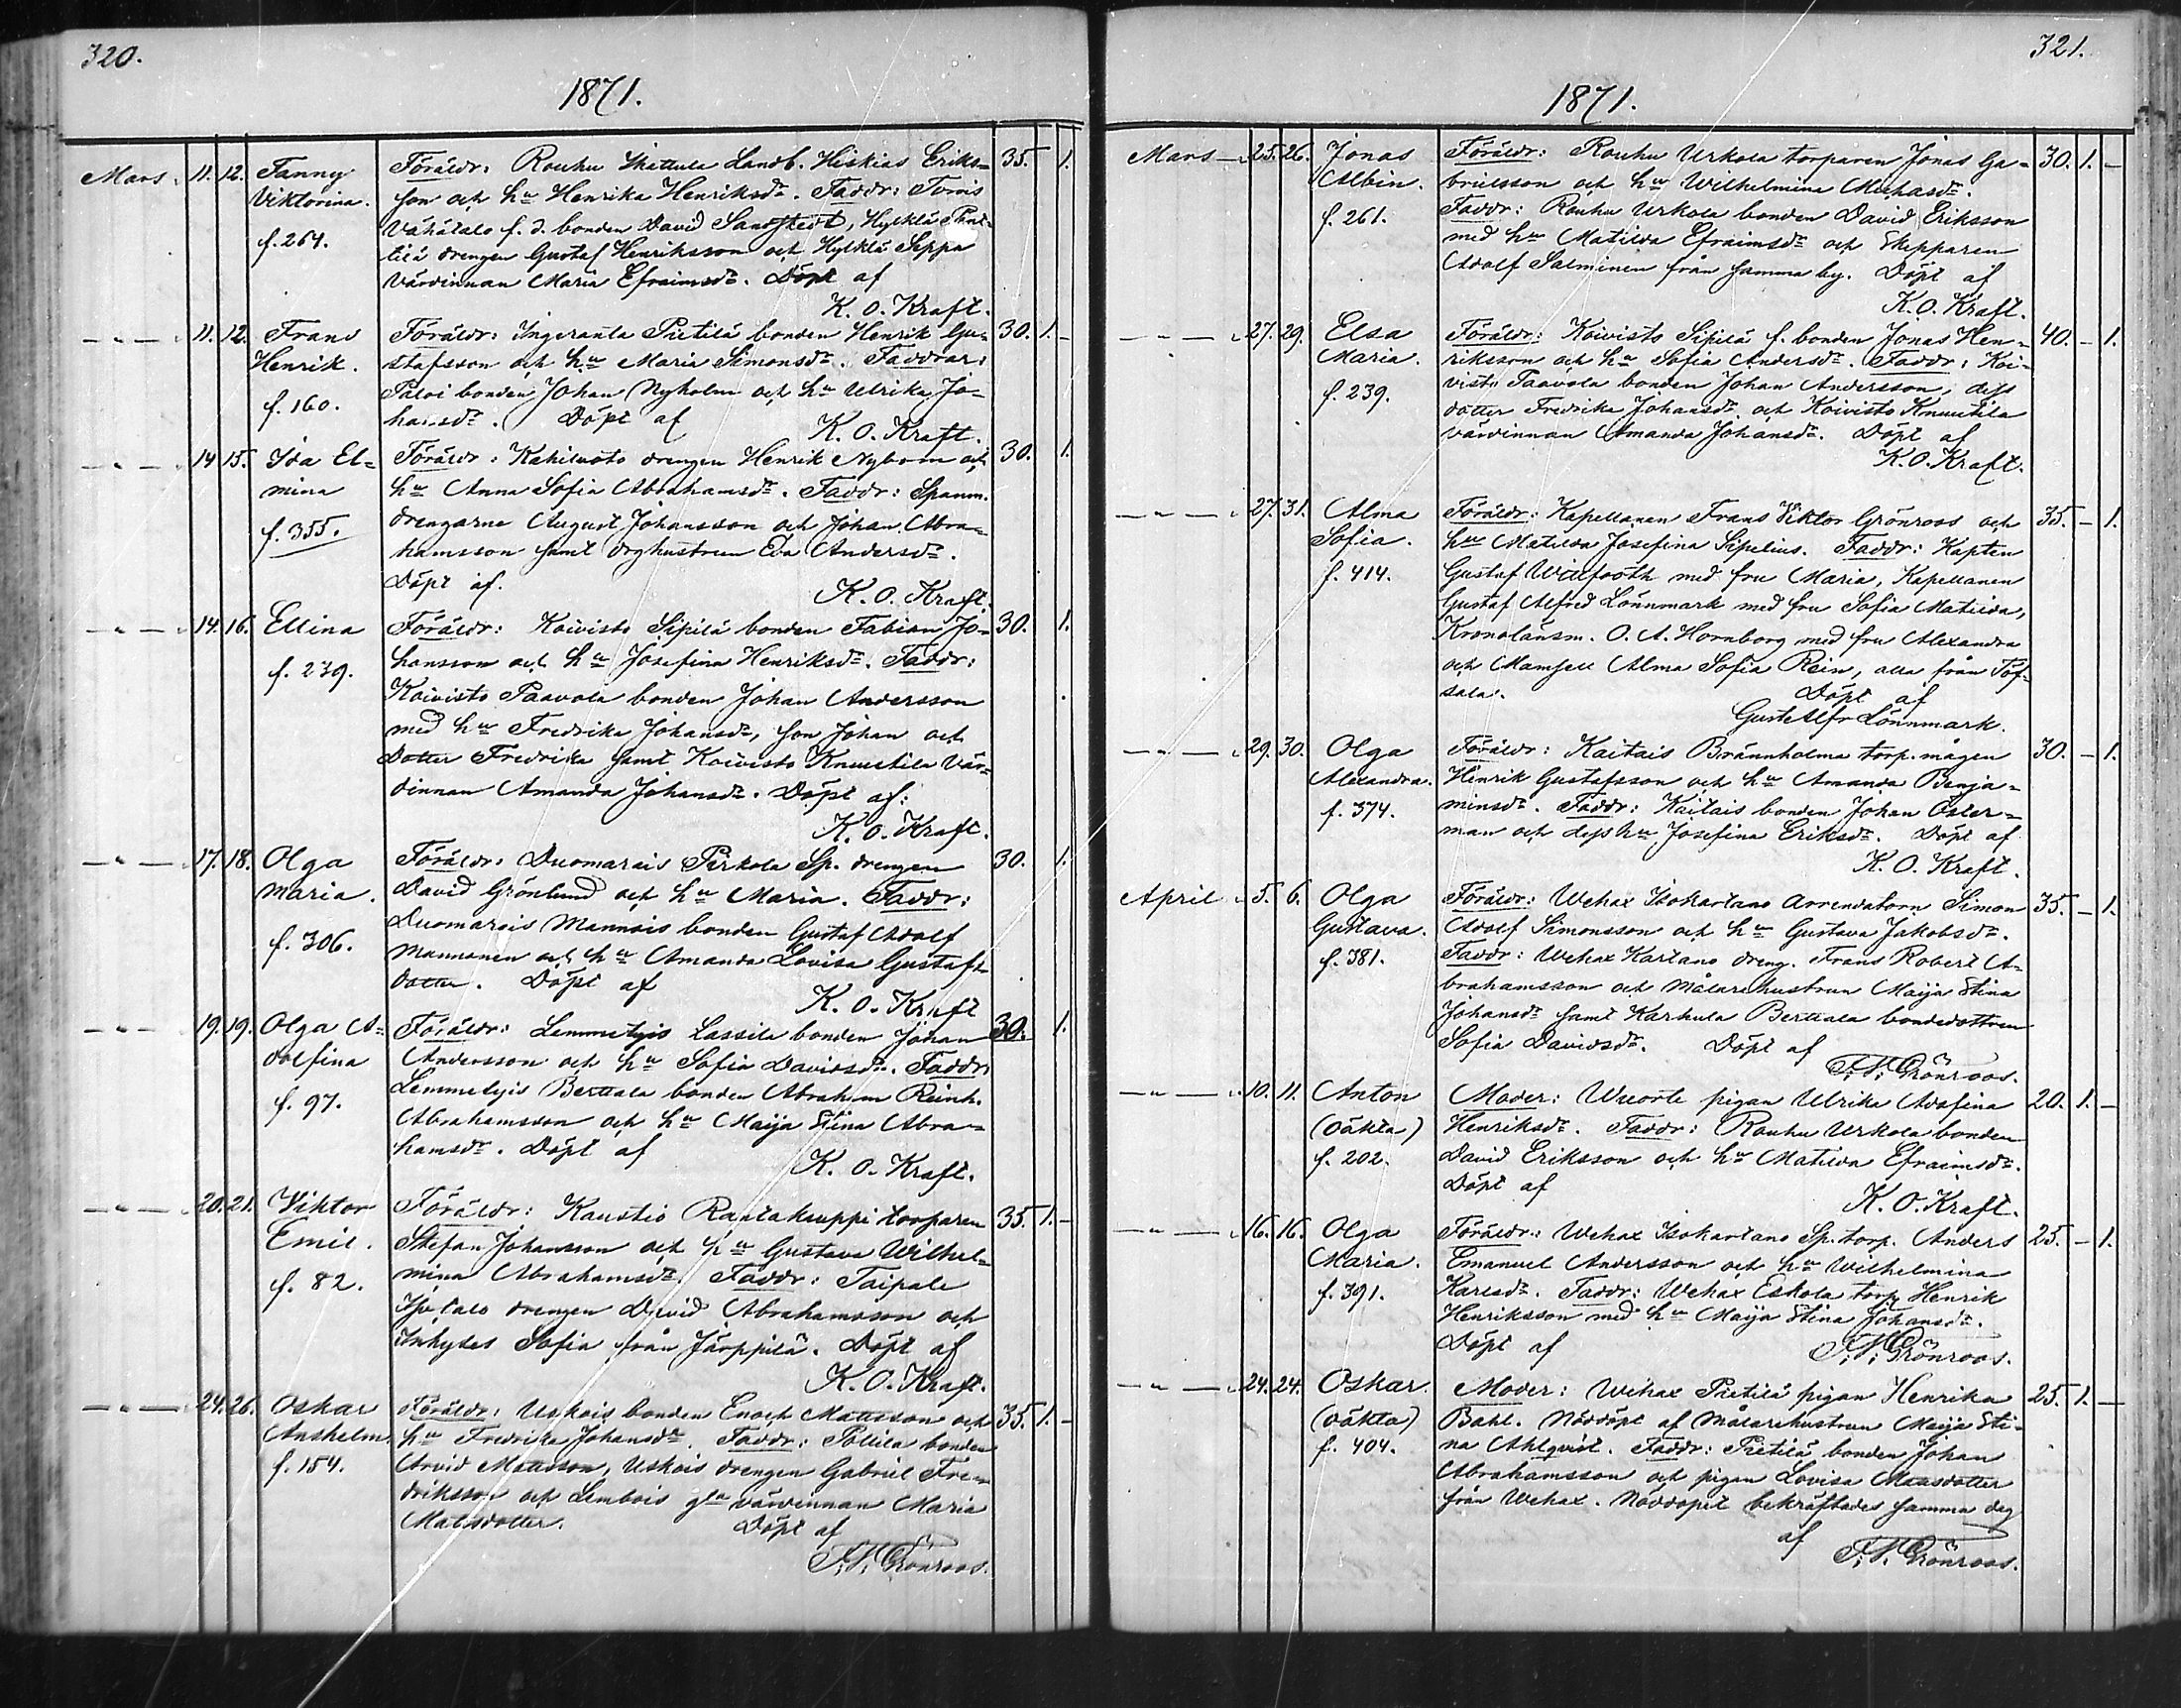 320.
1871.
Mars 11. 12. Fanny Föräldr: Rouhu Skattula Landb. Hiskias Eriks= 35. 1.
Viktorina. son och hu Henrika Henriksdr. Faddr: Tomis
f. 264. Vähätalo f. d. bonden David Sandstedt, Hylkilä
tilä drengen Gustaf Henriksson och Hylkilä Seppä
värdinnan Maria Efraimsdr. Döpt af
K. O. Kraft.
— " — 11. 12. Frans Föräldr: Ingeranta Pietilä bonden Henrik Gu= 30. 1. -
Henrik. stafsson och hu Maria Simonsdr. Faddrar:
f. 160. Paloi bonden Johan Nyholm och hu Ulrika Jo=
hansdr. Döpt af K. O. Kraft.
— " — 14 15. Ida El= Föräldr: Kahiluoto drengen Henrik Nybom och 30. 1.
mina hu Anna Sofia Abrahamsdr. Faddr: Spanm.
f. 355. drengarne August Johansson och Johan Abra=
hamsson samt drghustrun Eva Andersdr.
Döpt af. K. O. Kraft.
— " — 14. 16. Ellina Föräldr: Koivisto Sipilä bonden Fabian Jo= 30. 1.
f. 239. hansson och hu Josefina Henriksdr. Faddr:
Koivisto Paavola bonden Johan Andersson
med hu Fredrika Johansdr, son Johan och
Dotter Fredrika samt Koivisto Knuutila vär=
dinnan Amanda Johansdr. Döpt af:
K. O. Kraft.
— " — 17. 18. Olga Föräldr: Duomarais Pirkola Sp. drengen 30. 1.
Maria. David Grönlund och hu Maria. Faddr:
f. 306. Duomarais Mannais bonden Gustaf Adolf
Mannonen och hu Amanda Lovisa Gustafs=
dotter. Döpt af K. O. Kraft
— " — 19. 19. Olga A= Föräldr: Lemmetyis Lassila bonden Johan 30. 1.
dolfina Andersson och hu Sofia Davidsdr. Faddr:
f. 97. Lemmetyis Berttala bonden Abraham Reinh.
Abrahamsson och hu Maija Stina Abra=
hamsdr. Döpt af K. O. Kraft.
— " — 20. 21. Viktor Föräldr: Kaustio Rantakauppi torparen 35. 1. -
Emil. Stefan Johansson och hu Gustava Wilhel=
f. 82. mina Abrahamsdr. Faddr: Taipale
drengen David Abrahamsson och
Inhyses Sofia från Järppilä. Döpt af
K. O. Kraft.
— " — 24. 26. Oskar Föräldr: Uskois bonden Enoch Mattsson och 35. 1. -
Anshelm. hu Fredrika Johansdr. Faddr: Pollila bonden
f. 154. Arvid Mattsson, Uskois drengen Gabriel Fre=
driksson och Limbois gla värdinnan Maria
Matsdotter. Döpt af
F. V. Grönroos.
321.
1871.
Mars 25. 26. Jonas Föräldr: Rouhu Urkola torparen Jonas Ga= 30. 1. -
Albin. brielsson och hu Wilhelmina Michasdr.
f. 261. Faddr: Rouhu Urkola bonden David Eriksson
med hu Matilda Efraimsdr och Skepparen
Adolf Salminen från samma by. Döpt af
K. O. Kraft.
— " — 27. 29. Elsa Föräldr: Koivisto Sipilä f. bonden Jonas Hen= 40. - 1.
Maria. riksson och hu Sofia Andersdr. Faddr: Koi=
f. 239. visto Paavola bonden Johan Andersson, dess
dotter Fredrika Johansdr och Koivisto Knuutila
värdinnan Amanda Johansdr. Döpt af
K. O. Kraft.
— " — 27. 31. Alma Föräldr: Kapellanen Frans Viktor Grönroos och 35. - 1.
Sofia. hu Matilda Josefina Sipelius. Faddr: Kapten
f. 414. Gustaf Willfooth med fru Maria, Kapellanen
Gustaf Alfred Lönnmark med fru Sofia Matilda,
Kronolänsm. O. A. Hornborg med fru Alexandra
och Mamsell Alma Sofia Rein, alla från Töf=
sala. Döpt af
Gust Alfr Lönnmark.
— " — 29. 30. Olga Föräldr: Kaitais Brännholma torp. mågen 30. - 1.
Alexandra. Henrik Gustafsson och hu Amanda Benja=
f. 374. minsdr. Faddr: Kaitais bonden Johan Öster=
man och dess hu Josefina Eriksdr. Döpt af
K. O. Kraft.
April 5. 6. Olga Föräldr: Wehax Isokartano arrendatorn Simon 35. - 1.
Gustava. Adolf Simonsson och hu Gustava Jakobsdr.
f. 381. Faddr: Wehax Kartano dreng. Frans Robert A=
brahamsson och Målarehustrun Maija Stina
Johansdr samt Karhula Berttala bondedottren
Sofia Davidsdr. Döpt af
F. V. Grönroos.
— " — 10. 11. Anton Moder: Wuorte pigan Ulrika Adofina 20. 1. -
(oäkta) Henriksdr. Faddr: Rouhu Urkola bonden
f. 202. David Eriksson och hu Matilda Efraimsdr.
Döpt af
K. O. Kraft.
— " — 16. 16. Olga Föräldr: Wehax Isokartano Sp. torp. Anders 25. - 1.
Maria. Emanuel Andersson och hu Wilhelmina
f. 391. Karlsdr. Faddr: Wehax Eskola torp. Henrik
Henriksson med hu Maija Stina Johansdr.
Döpt af F. V. Grönroos.
— " — 24. 24. Oskar. Moder: Wehax Pietilä pigan Henrika 25. 1. -
(oäkta) Bahl. Nöddöpt af Målarehustrun Maija Sti=
f. 404. na Ahlqvist. Faddr: Pietilä bonden Johan
Abrahamsson och pigan Lovisa Matsdotter
från Wehax. Nöddopet bekräftades samma dag
af F. V. Grönroos.